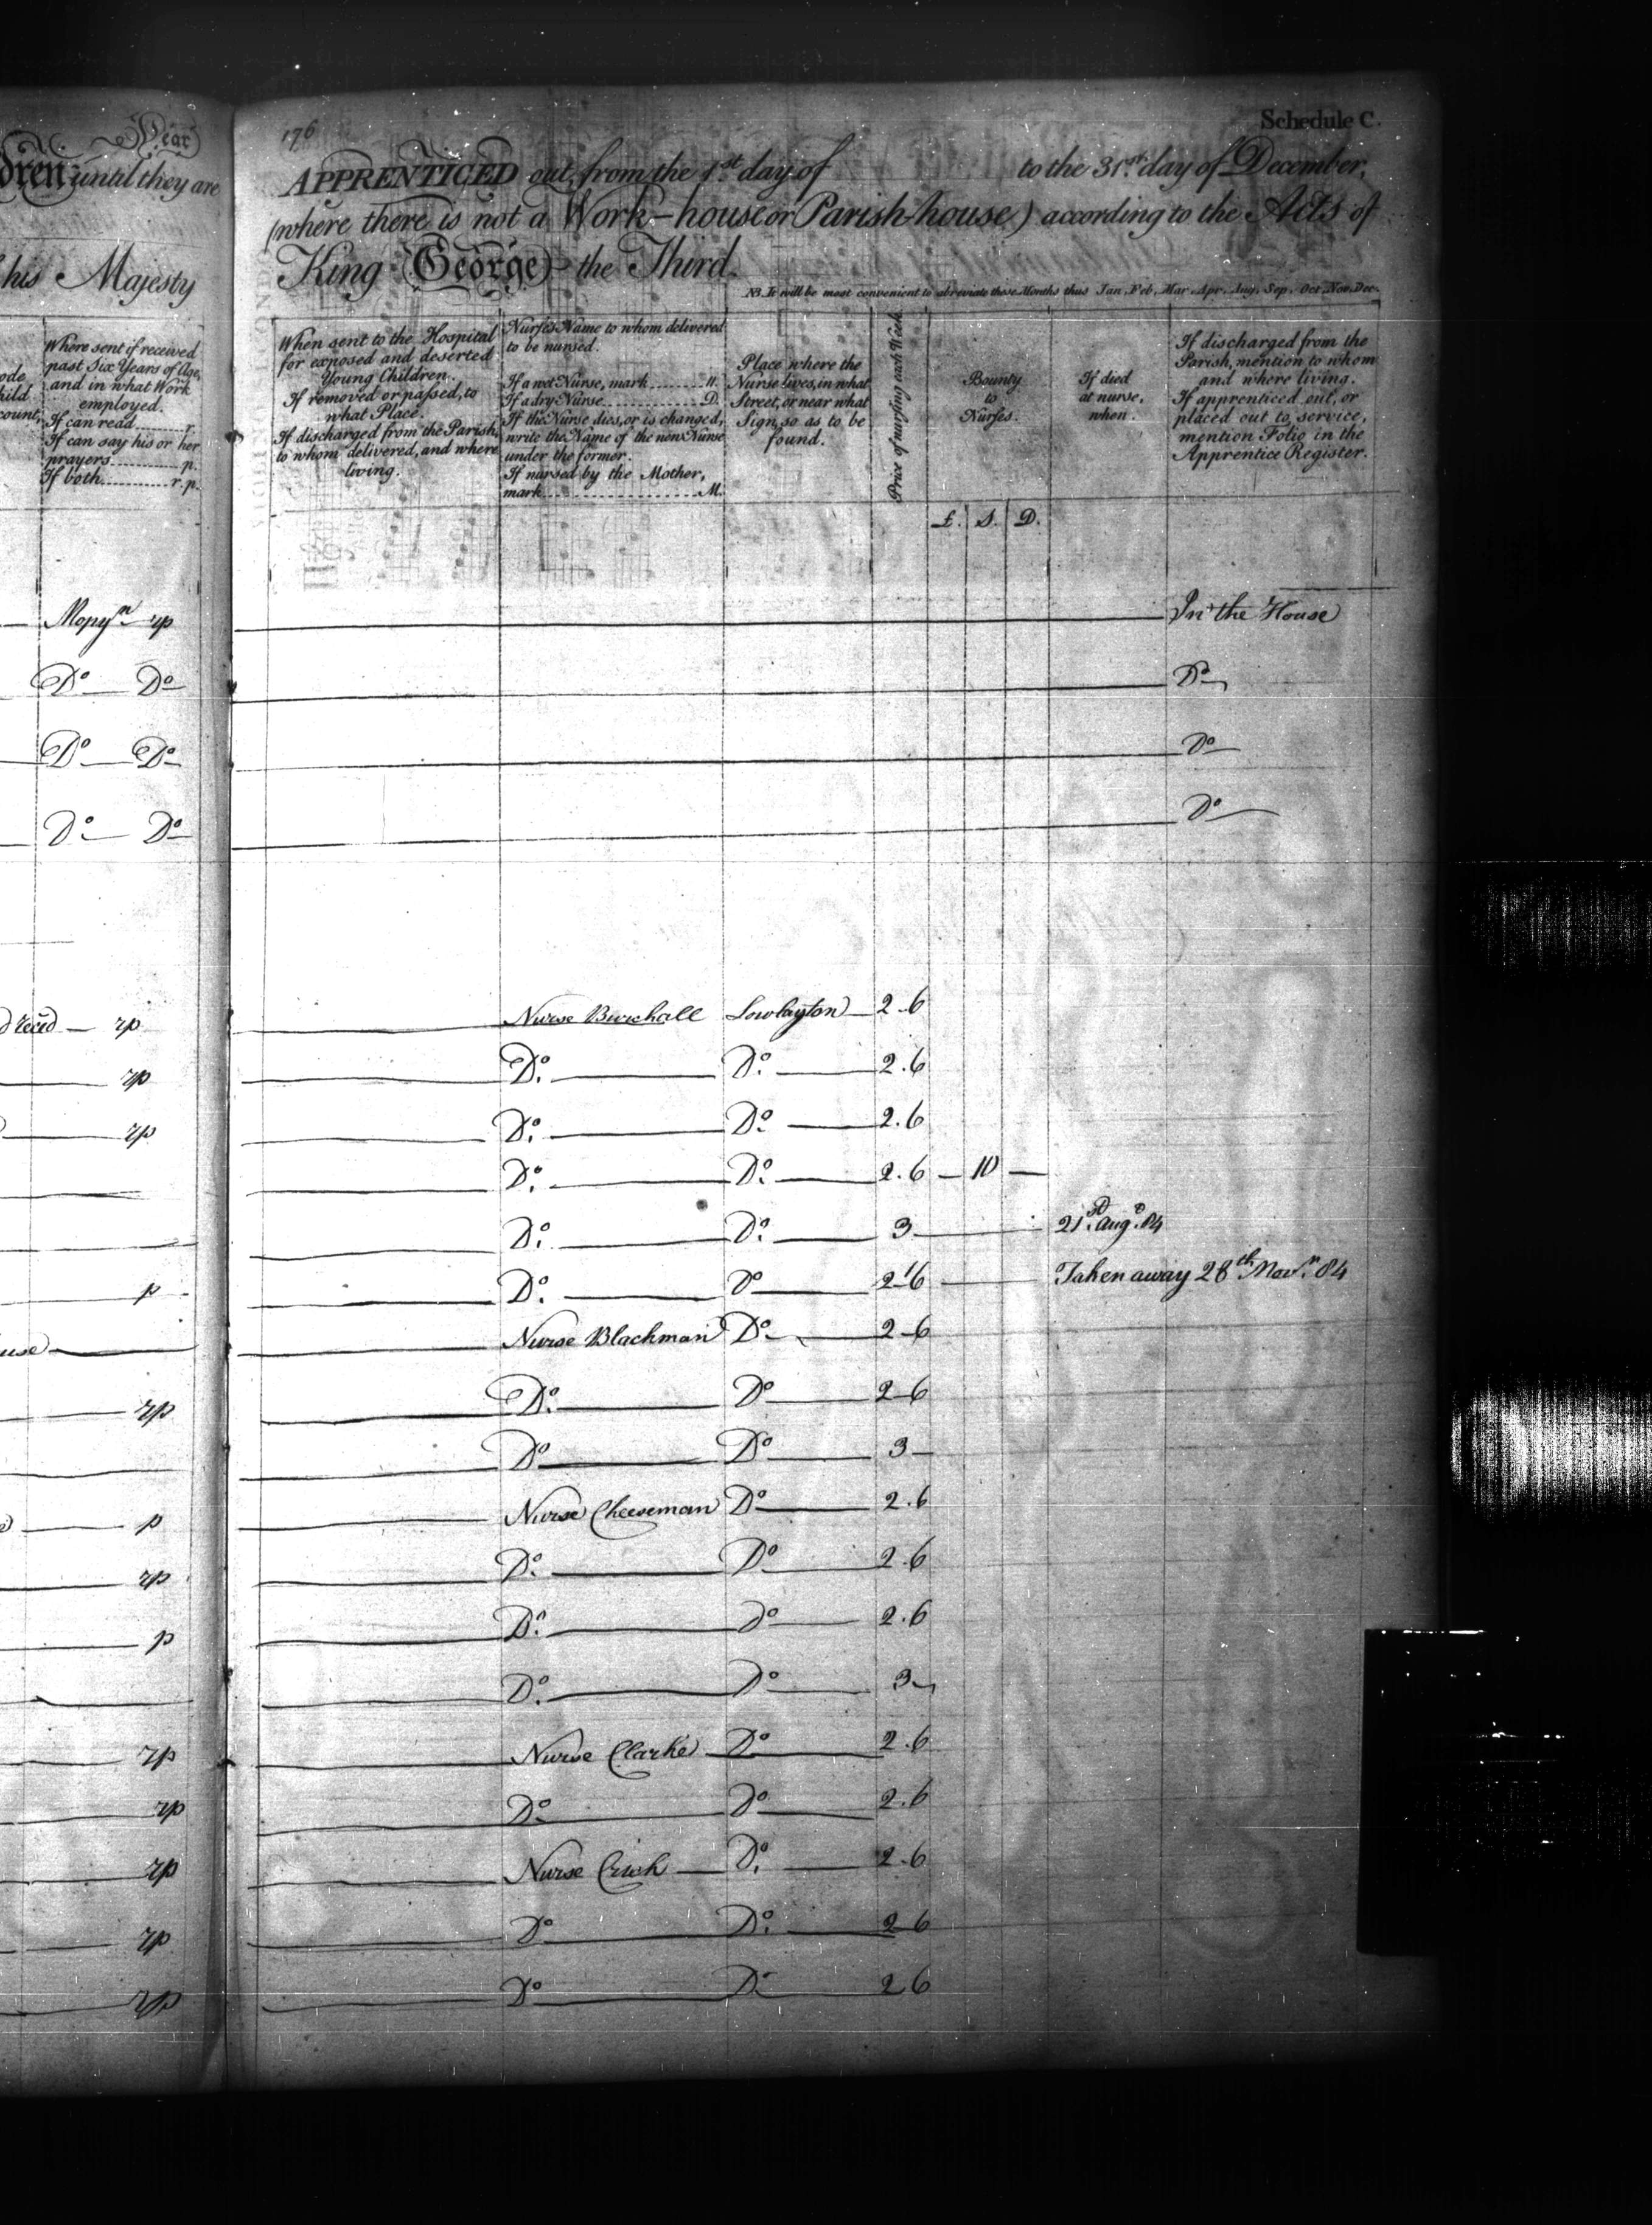 Year
dren until they are
his Majesty
Where sent if received
past Six Years of Age,
and in what Work
employed.
If can read........r.
If can say his or her
prayers............p.
If both..........r.p.
176
Schedule C.
APPRENTICED out, from the 1st day of to the 31st day of December,
(where there is not a Work-house or Parish-house) according to the Acts of
King George the Third.
NB. It will be most convenient to abreviate those Months thus Jan. Feb. Mar. Apr. Aug. Sep. Oct. Nov. Dec.
When sent to the Hospital
for exposed and deserted
Young Children.
If removed or passed, to
what Place.
If discharged from the Parish,
to whom delivered, and where
living.
Nurses Name to whom delivered
to be nursed.
If a wet Nurse, mark........W.
If a dry Nurse..............D.
If the Nurse dies, or is changed,
write the Name of the new Nurse
under the former.
If nursed by the Mother,
mark....................M.
Place where the
Nurse lives, in what
Street, or near what
Sign, so as to be
found.
Price of nursing each Week.
Bounty
to
Nurses.
If died
at nurse,
when.
If discharged from the
Parish, mention to whom
and where living.
If apprenticed out, or
placed out to service,
mention Folio in the
Apprentice Register.
£. S. D.
rp In the House
Do Do Do
Do Do Do
Do Do Do
recd rp Nurse Burchall Lowlayton 2.6
rp Do Do 2.6
rp Do Do 2.6
Do Do 2.6 – 10 –
Do Do 3 21st Augt 84
p Do Do 2.6 Taken away 28th Novr 84
use Nurse Blackman Do 2.6
rp Do Do 2.6
Do Do 3
p Nurse Cheeseman Do 2.6
rp Do Do 2.6
p Do Do 2.6
Do Do 3
rp Nurse Clarke Do 2.6
rp Do Do 2.6
rp Nurse Crish Do 2.6
rp Do Do 2.6
rp Do Do 2.6